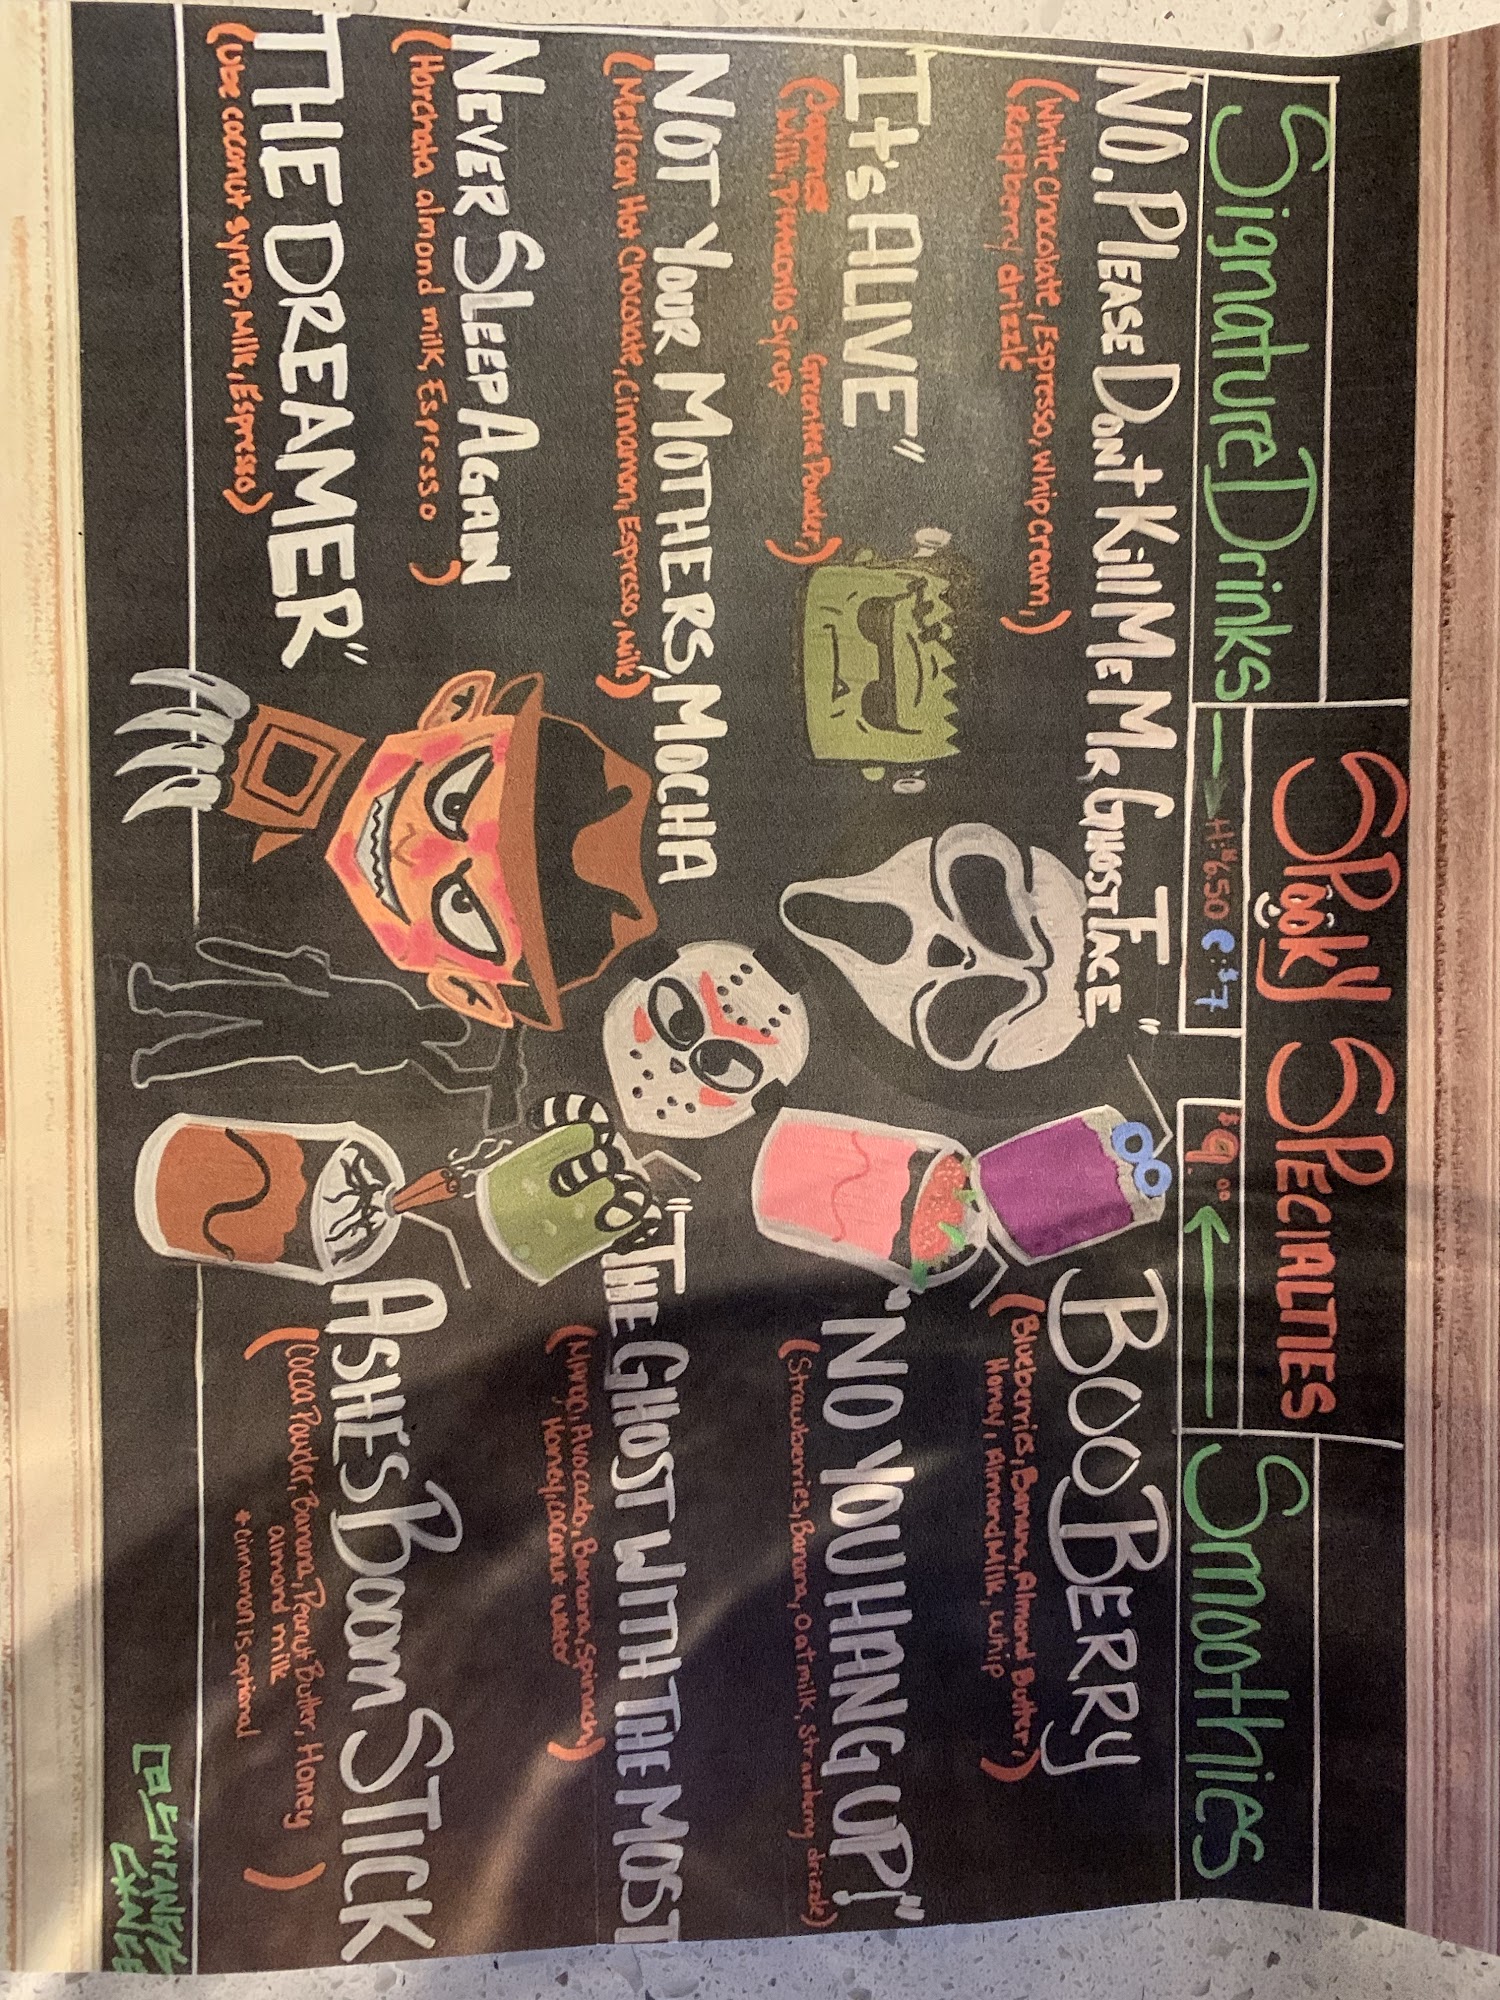 Spooky Specialties
Signature Drinks
H: $6.50 C: $7
No, Please Dont Kill Me Mr. Ghost Face"
(White Chocolate, Espresso, whip cream,)
Raspberry drizzle
It's ALIVE"
(Japanese Greentea Powder,)
Milk, Pistachio Syrup
Not Your Mothers, Mocha
(Mexican Hot Chocolate, Cinnamon, Espresso, Milk)
Never Sleep Again
(Horchata almond milk, Espresso)
THE DREAMER"
(Ube coconut syrup, Milk, Espresso)
Smoothies
$9.00
Boo Berry
(Blueberries, Banana, Almond Butter,)
Honey, Almond Milk, whip
"NO YOU HANG UP!"
(Strawberries, Banana, Oatmilk, Strawberry drizzle)
"THE GHOST WITH THE MOST
(Mango, Avocado, Banana, Spinach)
Honey, coconut water
ASHES BOOM STICK
(Cocoa Powder, Banana, Peanut Butter, Honey
almond milk)
*cinnamon is optional